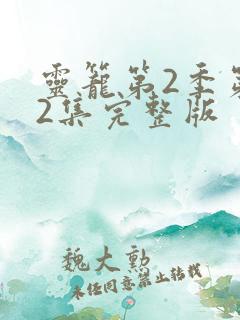 靈籠第2季第
2集完整版
魏大勳
未经同意禁止转载